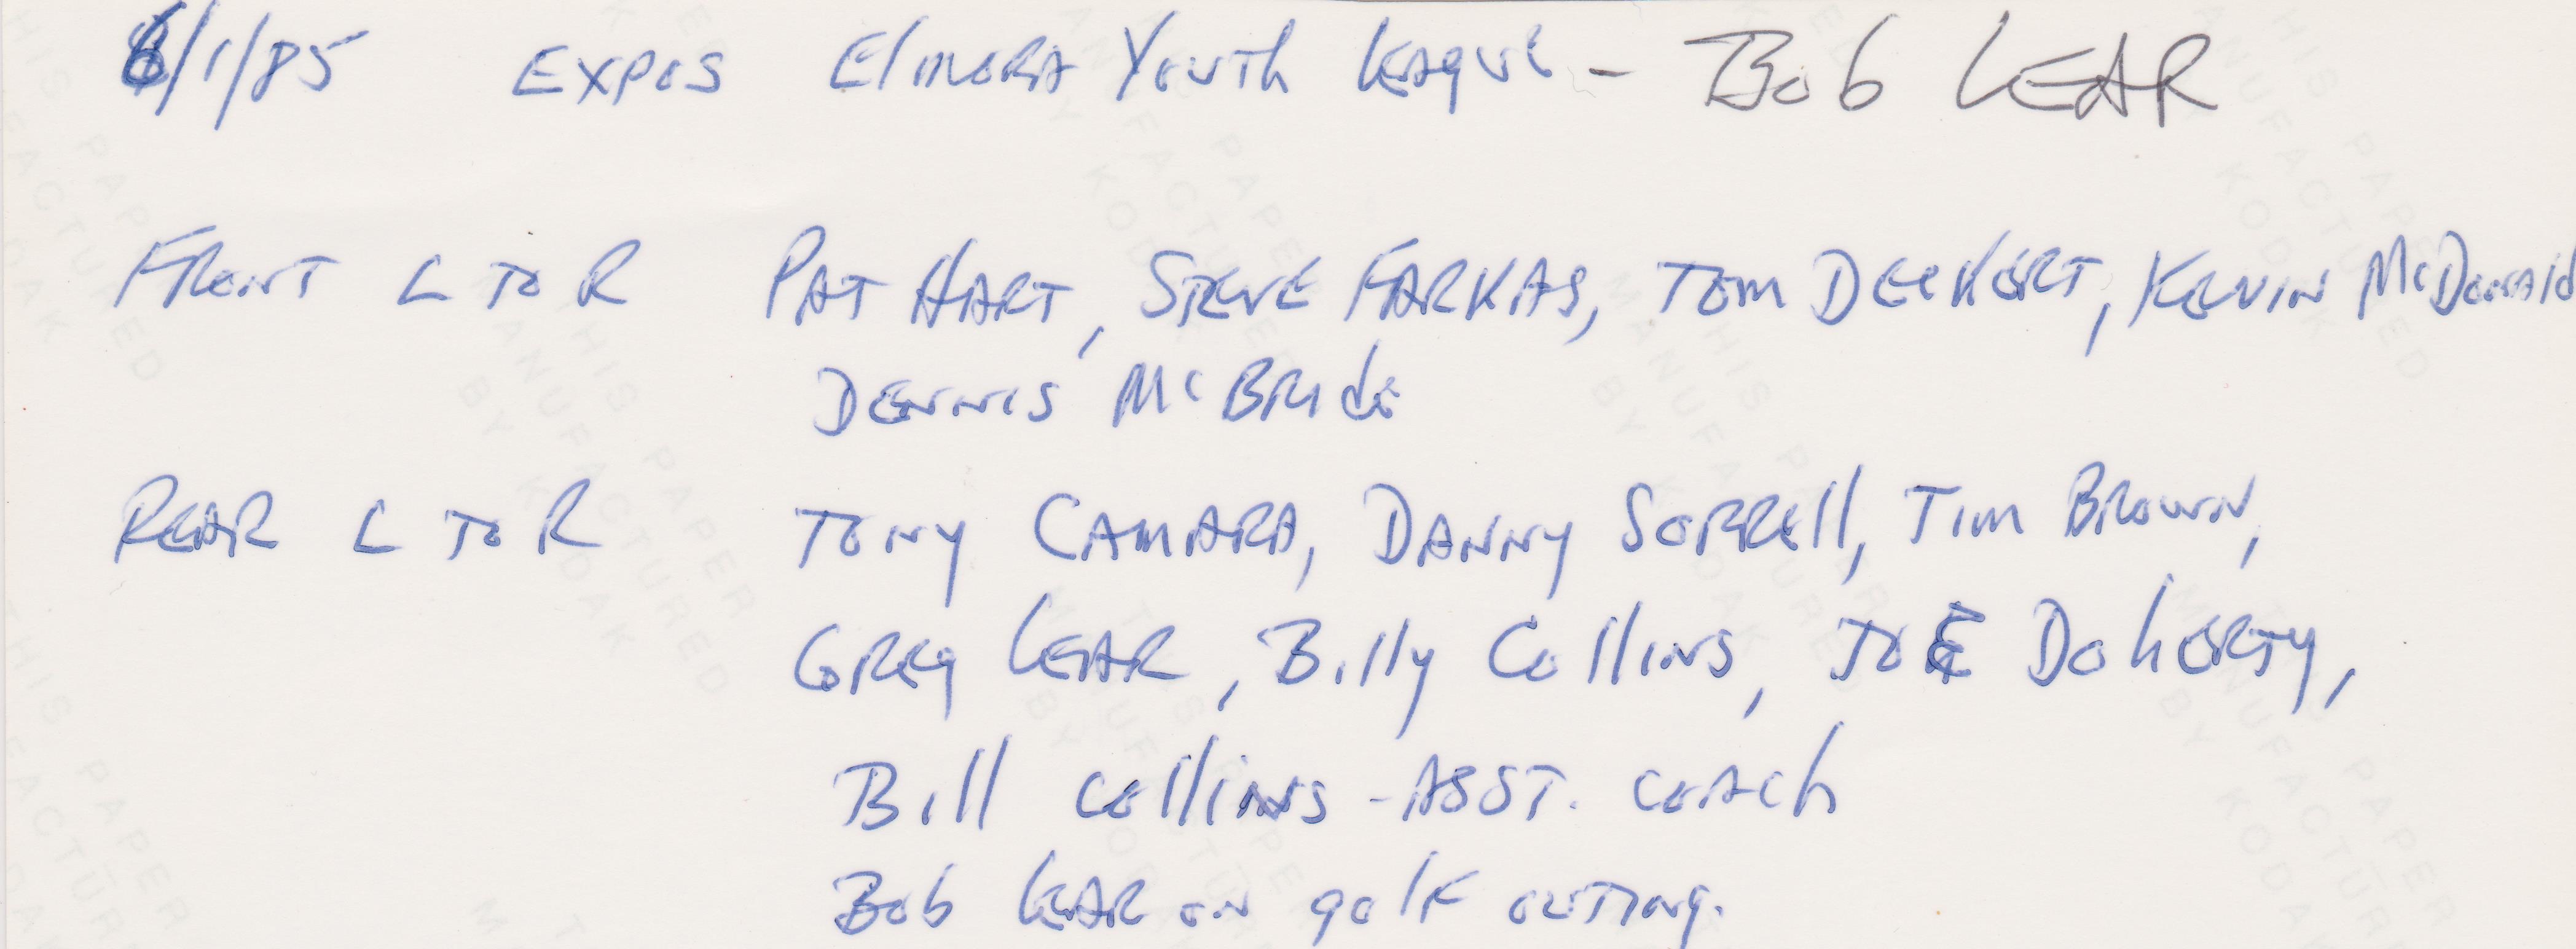 6/1/85 EXPOS Elmora Youth League - Bob LEAR
FRONT L TO R PAT HART, STEVE FARKAS, TOM DECKERT, KEVIN McDonald
DENNIS McBRIDE
REAR L TO R TONY CAMARA, DANNY SORRELL, TIM BROWN,
GREG LEAR, Billy Collins, JOE DOHERTY,
Bill Collins - ASST. COACH
Bob LEAR ON golf OUTING.
THIS PAPER
MANUFACTURED
BY KODAK